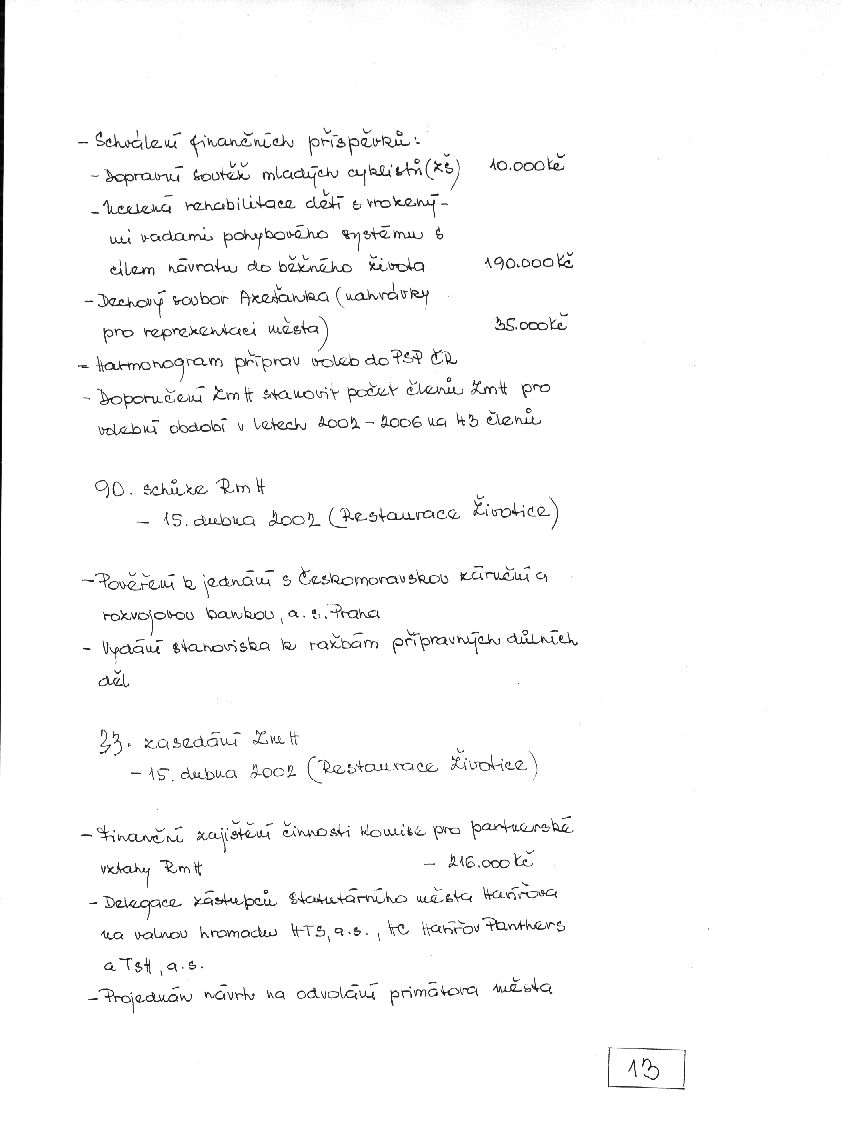 - Schválení finančních příspěvků:
- Dopravní soutěž mladých cyklistů (ZŠ) 10.000 Kč
- Ucelená rehabilitace dětí s vrozený-
mi vadami pohybového systému s
cílem návratu do běžného života 190.000 Kč
- Dechový soubor (nahrávky
pro reprezentaci města) 35.000 Kč
- Harmonogram příprav voleb do PSP ČR
- Doporučení ZmH stanovit počet členů ZmH pro
volební období v letech 2002 - 2006 na 43 členů
90. schůze RmH
- 15. dubna 2002 (Restaurace Životice)
- Pověření k jednání s Českomoravskou záruční a
rozvojovou bankou, a.s. Praha
- Vydání stanoviska k ražbám přípravných důlních
děl
33. zasedání ZmH
- 15. dubna 2002 (Restaurace Životice)
- Finanční zajištění činnosti komise pro partnerské
vztahy RmH - 216.000 Kč
- Delegace zástupců Statutárního města Havířova
na valnou hromadu HTS, a.s., HC Havířov Panthers
a TSH, a.s.
- Projednán návrh na odvolání primátora města
13